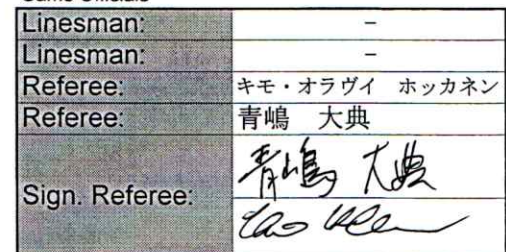 Linesman: −
Linesman: −
Referee: キモ・オラヴイ ホッカネン
Referee: 青嶋 大典
Sign. Referee: 青嶋 大典